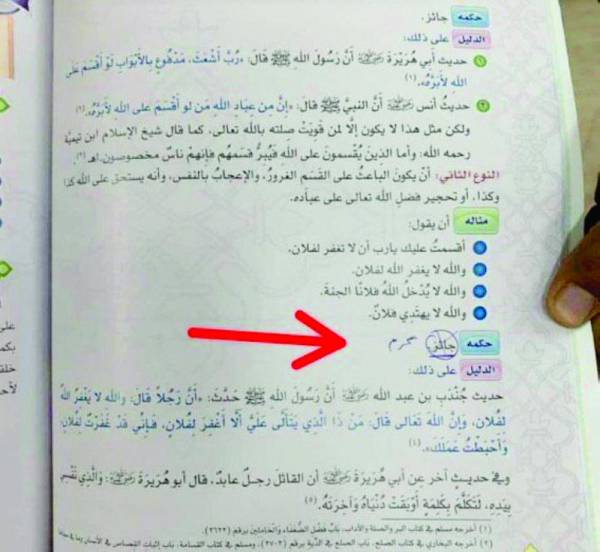 حكمه جائز.
الدليل على ذلك:
١ حديث أبي هُرَيْرَةَ رضي الله عنه أنَّ رَسُولَ اللهِ ﷺ قَالَ: «رُبَّ أَشْعَثَ، مَدْفُوعٍ بِالأَبْوَابِ لَوْ أَقْسَمَ عَلَى
اللهِ لَأَبَرَّهُ».(١)
٢ حديثُ أنس رضي الله عنه أنَّ النبيَّ ﷺ قالَ: «إنَّ مِن عِبَادِ اللهِ مَن لو أَقْسَمَ على اللهِ لأَبَرَّهُ».(٢)
ولكن مثل هذا لا يكون إلَّا لمن قَوِيَتْ صلته بالله تعالى، كما قال شيخ الإسلام ابن تيمية
رحمه الله: وأما الذينَ يُقْسمونَ على اللهِ فَيُبِرُّ قَسَمَهُم فإنهمْ ناسٌ مخصوصون.اهـ (٣).
النوع الثاني: أنْ يكونَ الباعثُ على القَسَمِ الغرورُ، والإعجابُ بالنفس، وأنه يستحق على الله كذا
وكذا، أو تحجير فضلِ اللهِ تعالى على عبادِه.
مثاله أن يقول:
أقسمتُ عليك يارب أن لا تغفر لفلان.
والله لا يغفر الله لفلان.
والله لا يُدْخلُ اللهُ فلانًا الجنةَ.
والله لا يهتدِي فلانٌ.
حكمه جائز. محرم
الدليل على ذلك:
حديث جُنْدَبِ بن عبد الله رضي الله عنه أنَّ رَسُولَ اللهِ ﷺ حَدَّثَ: «أنَّ رَجُلاً قالَ: والله لا يَغْفِرُ اللهُ
لفُلَان، وإنَّ اللهَ تعَالى قَالَ: مَنْ ذَا الَّذِي يَتَأَلَّى عَلَيَّ أَلَّا أَغْفِرَ لِفُلَانٍ، فَإِنِّي قَدْ غَفَرْتُ لِفُلَانٍ
وَأَحْبَطْتُ عَمَلَكَ».(٤)
وفي حديث آخر عن أبي هُرَيرَةَ رضي الله عنه أن القائلَ رجلٌ عابدٌ، قال أبو هُرَيْرَةَ: وَالَّذِي نَفْسِي
بِيَدِهِ، لَتَكَلَّمَ بِكَلِمَةٍ أَوْبَقَتْ دُنْيَاهُ وَآخِرَتَهُ.(٥)
(١) أخرجه مسلم في كتاب البر والصلة والآداب، بَابُ فَضْلِ الضُّعَفَاءِ، وَالْخَامِلِينَ برقم (٢٦٢٢).
(٢) أخرجه البخاري في كتاب الصلح، باب الصلح في الدِّيَة برقم (٢٧٠٣)، ومسلم في كتاب القسامة، باب إثبات القصاص في الأسنان وما في معناها